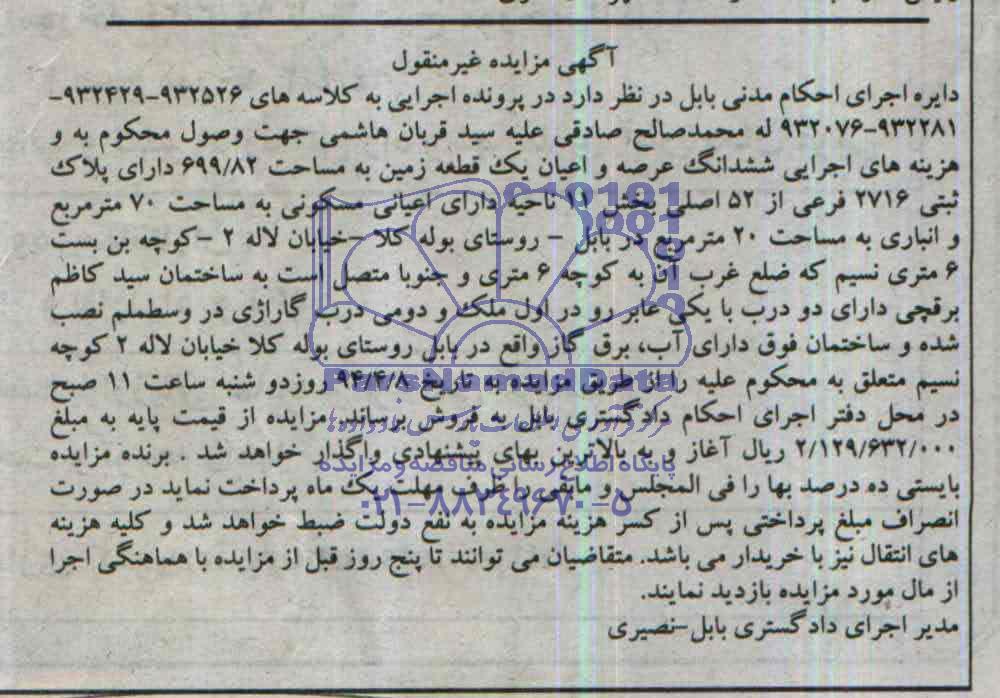 آگهی مزایده غیرمنقول
دایره اجرای احکام مدنی بابل در نظر دارد در پرونده اجرایی به کلاسه های ۹۳۲۵۲۶-۹۳۲۴۲۹-
۹۳۲۲۸۱-۹۳۲۰۷۶ له محمدصالح صادقی علیه سید قربان هاشمی جهت وصول محکوم به و
هزینه های اجرایی ششدانگ عرصه و اعیان یک قطعه زمین به مساحت ۶۹۹/۸۲ دارای پلاک
ثبتی ۲۷۱۶ فرعی از ۵۲ اصلی بخش ۱۱ ناحیه دارای اعیانی مسکونی به مساحت ۷۰ مترمربع
و انباری به مساحت ۲۰ مترمربع در بابل - روستای بوله کلا -خیابان لاله ۲ -کوچه بن بست
۶ متری نسیم که ضلع غرب آن به کوچه ۶ متری و جنوبا متصل است به ساختمان سید کاظم
برقچی دارای دو درب با یکی عابر رو در اول ملک و دومی درب گاراژی در وسطملم نصب
شده و ساختمان فوق دارای آب، برق گاز واقع در بابل روستای بوله کلا خیابان لاله ۲ کوچه
نسیم متعلق به محکوم علیه را از طریق مزایده به تاریخ ۹۴/۴/۸ روزدو شنبه ساعت ۱۱ صبح
در محل دفتر اجرای احکام دادگستری بابل به فروش برساند.مزایده از قیمت پایه به مبلغ
۲/۱۲۹/۶۳۲/۰۰۰ ریال آغاز و به بالاترین بهای پیشنهادی واگذار خواهد شد . برنده مزایده
بایستی ده درصد بها را فی المجلس و مابقی را ظرف مهلت یک ماه پرداخت نماید در صورت
انصراف مبلغ پرداختی پس از کسر هزینه مزایده به نفع دولت ضبط خواهد شد و کلیه هزینه
های انتقال نیز با خریدار می باشد. متقاضیان می توانند تا پنج روز قبل از مزایده با هماهنگی اجرا
از مال مورد مزایده بازدید نمایند.
مدیر اجرای دادگستری بابل-نصیری
پایگاه اطلاع رسانی مناقصه و مزایده
۰۲۱-۸۸۳۴۹۶۷۰-۵